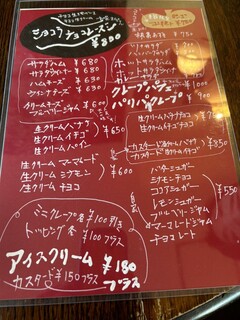 ショコラチョコレーズン
¥800
サラダハム ¥680
サラダツナ ¥680
ハムチーズ ¥630
ウインナチーズ ¥630
クリームチーズ
ブルーベリージャム ¥650
生クリームバナナ
生クリームイチゴ
生クリームパイン
¥650
生クリームマーマレード
生クリームシナモン
生クリームチョコ
¥600
ミニクレープ各¥100引き
トッピング各¥100プラス
アイスクリーム ¥180
カスタード¥150プラス
プラス
¥750
ホットサラダ
クレープパフェ
パリパリクレープ
¥900
生クリームバナナチョコ
生クリームイチゴチョコ
¥750
カスタード生クリームバナナチョコ
カスタード生クリームイチゴチョコ
¥850
バターシュガー
シナモンチョコ
ココアシュガー
レモンシュガー
ブルーベリージャム
マーマレードジャム
チョコレート
¥550